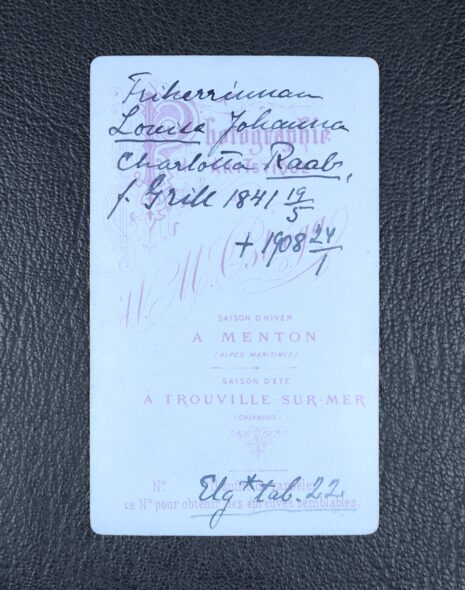 Friherrinnan
Louise Johanna
Photographie
Charlotta Raab,
f. Grill 1841 19/5
+ 1908 24/1
W. M.
SAISON D'HIVER
À MENTON
(ALPES MARITIMES)
SAISON D'ÉTÉ
À TROUVILLE-SUR-MER
(CALVADOS)
Nº
Elg * tab. 22.
ce Nº pour obtenir des épreuves semblables.